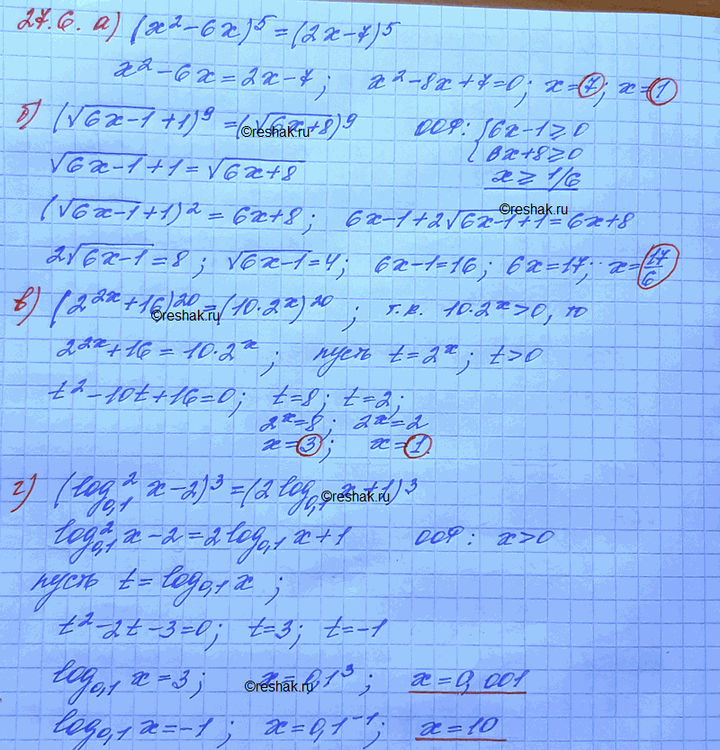 27.6. а) (x²-6x)⁵=(2x-7)⁵
x²-6x=2x-7; x²-8x+7=0; x=7; x=1
б) (√(6x-1)+1)⁹=(√(6x+8))⁹ ООФ: {6x-1≥0
©reshak.ru
√(6x-1)+1=√(6x+8) {6x+8≥0
x≥1/6
©reshak.ru
(√(6x-1)+1)²=6x+8; 6x-1+2√(6x-1)+1=6x+8
2√(6x-1)=8; √(6x-1)=4; 6x-1=16; 6x=17; x=17/6
в) (2²ˣ+16)²⁰=(10·2ˣ)²⁰; т.к. 10·2ˣ>0, то
©reshak.ru
2²ˣ+16=10·2ˣ; пусть t=2ˣ; t>0
t²-10t+16=0; t=8; t=2;
2ˣ=8; 2ˣ=2
x=3; x=1
г) (log²₀,₁ x-2)³=(2log₀,₁ x+1)³
©reshak.ru
log²₀,₁ x-2=2log₀,₁ x+1 ООФ: x>0
пусть t=log₀,₁ x;
t²-2t-3=0; t=3; t=-1
log₀,₁ x=3; x=0,1³; x=0,001
©reshak.ru
log₀,₁ x=-1; x=0,1⁻¹; x=10